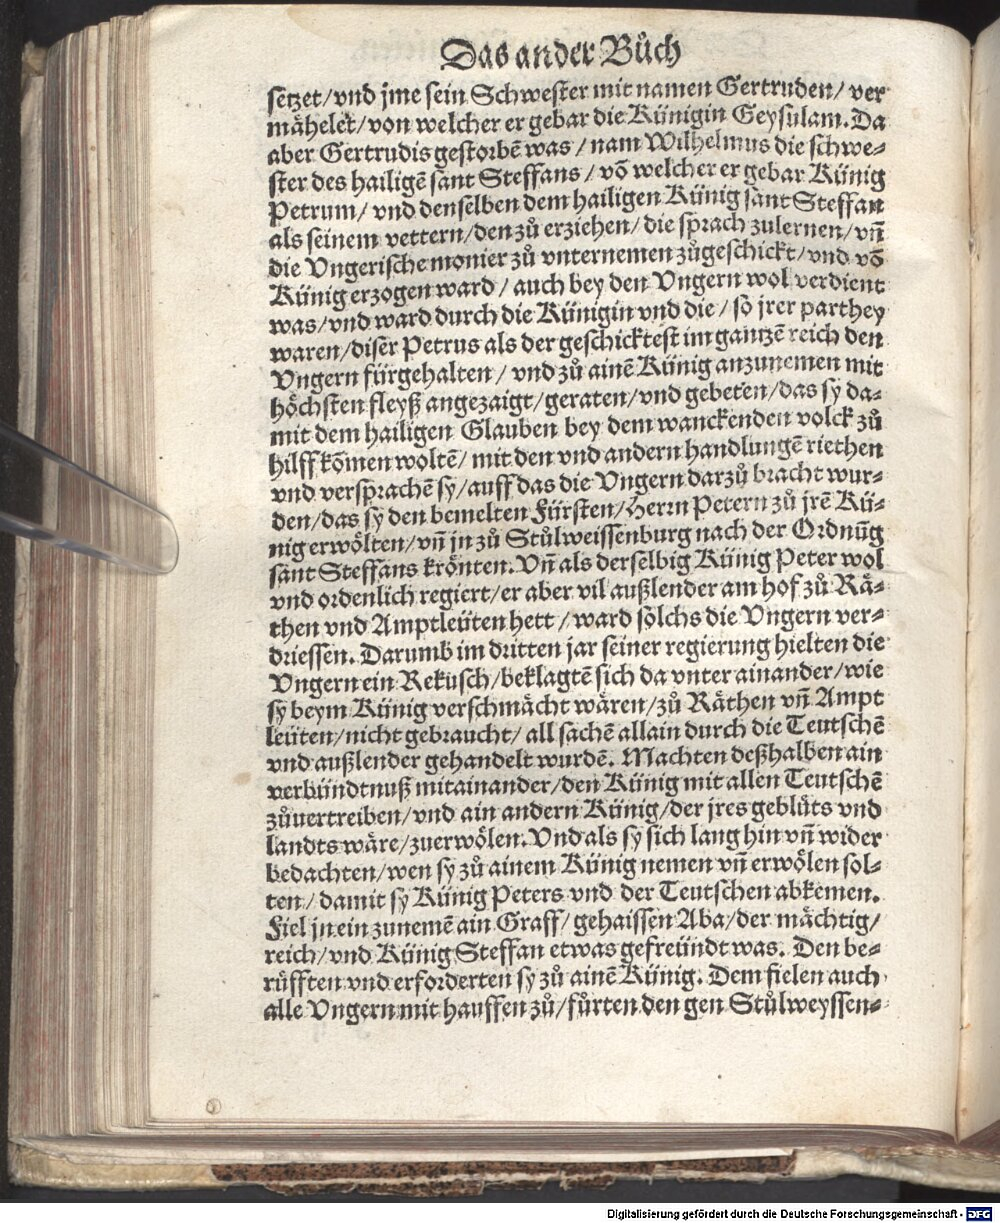 Das ander Bůch
setzet/vnd jme sein Schwester mit namen Gertruden/ ver
mähelet/von welcher er gebar die Künigin Geysulam. Da
aber Gertrudis gestorbẽ was/nam Wilhelmus die schwe⸗
ster des hailigẽ sant Steffans/võ welcher er gebar Künig
Petrum/vnd denselben dem hailigen Künig sant Steffan
als seinem vettern/den zů erziehen/die sprach zulernen/vñ
die Vngerische monier zů vnternemen zůgeschickt/vnd võ
Künig erzogen ward/auch bey den Vngern wol verdient
was/vnd ward durch die Künigin vnd die/so jrer parthey
waren/diser Petrus als der geschicktest im gantzẽ reich den
Vngern fürgehalten/vnd zů ainẽ Künig anzunemen mit
höchsten fleyß angezaigt/geraten/vnd gebeten/das sy da⸗
mit dem hailigen Glauben bey dem wanckenden volck zů
hilff kõmen woltẽ/mit den vnd andern handlungẽ riethen
vnd versprachẽ sy/auff das die Vngern darzů bracht wur⸗
den/das sy den bemelten Fürsten/Herrn Petern zů jrẽ Kü⸗
nig erwölten/vñ jn zů Stůlweissenburg nach der Ordnũg
sant Steffans krönten. Vñ als derselbig Künig Peter wol
vnd ordenlich regiert/er aber vil außlender am hof zů Rä⸗
then vnd Amptleüten hett/ward sölchs die Vngern ver⸗
driessen. Darumb im dritten jar seiner regierung hielten die
Vngern ein Rekusch/beklagtẽ sich da vnter ainander/wie
sy beym Künig verschmächt wären/zů Räthen vñ Ampt
leüten/nicht gebraucht/all sachẽ allain durch die Teutschẽ
vnd außlender gehandelt wurdẽ. Machten deßhalben ain
verbündtnuß mitainander/den Künig mit allen Teutschẽ
zůuertreiben/vnd ain andern Künig/der jres geblůts vnd
landts wäre/zuerwölen. Vnd als sy sich lang hin vñ wider
bedachten/wen sy zů ainem Künig nemen vñ erwölen sol⸗
ten/damit sy Künig Peters vnd der Teutschen abkemen.
Fiel jn ein zunemẽ ain Graff/gehaissen Aba/der mächtig/
reich/vnd Künig Steffan etwas gefreündt was. Den be⸗
růfften vnd erforderten sy zů ainẽ Künig. Dem fielen auch
alle Vngern mit hauffen zů/fůrten den gen Stůlweyssen⸗
Digitalisierung gefördert durch die Deutsche Forschungsgemeinschaft - DFG